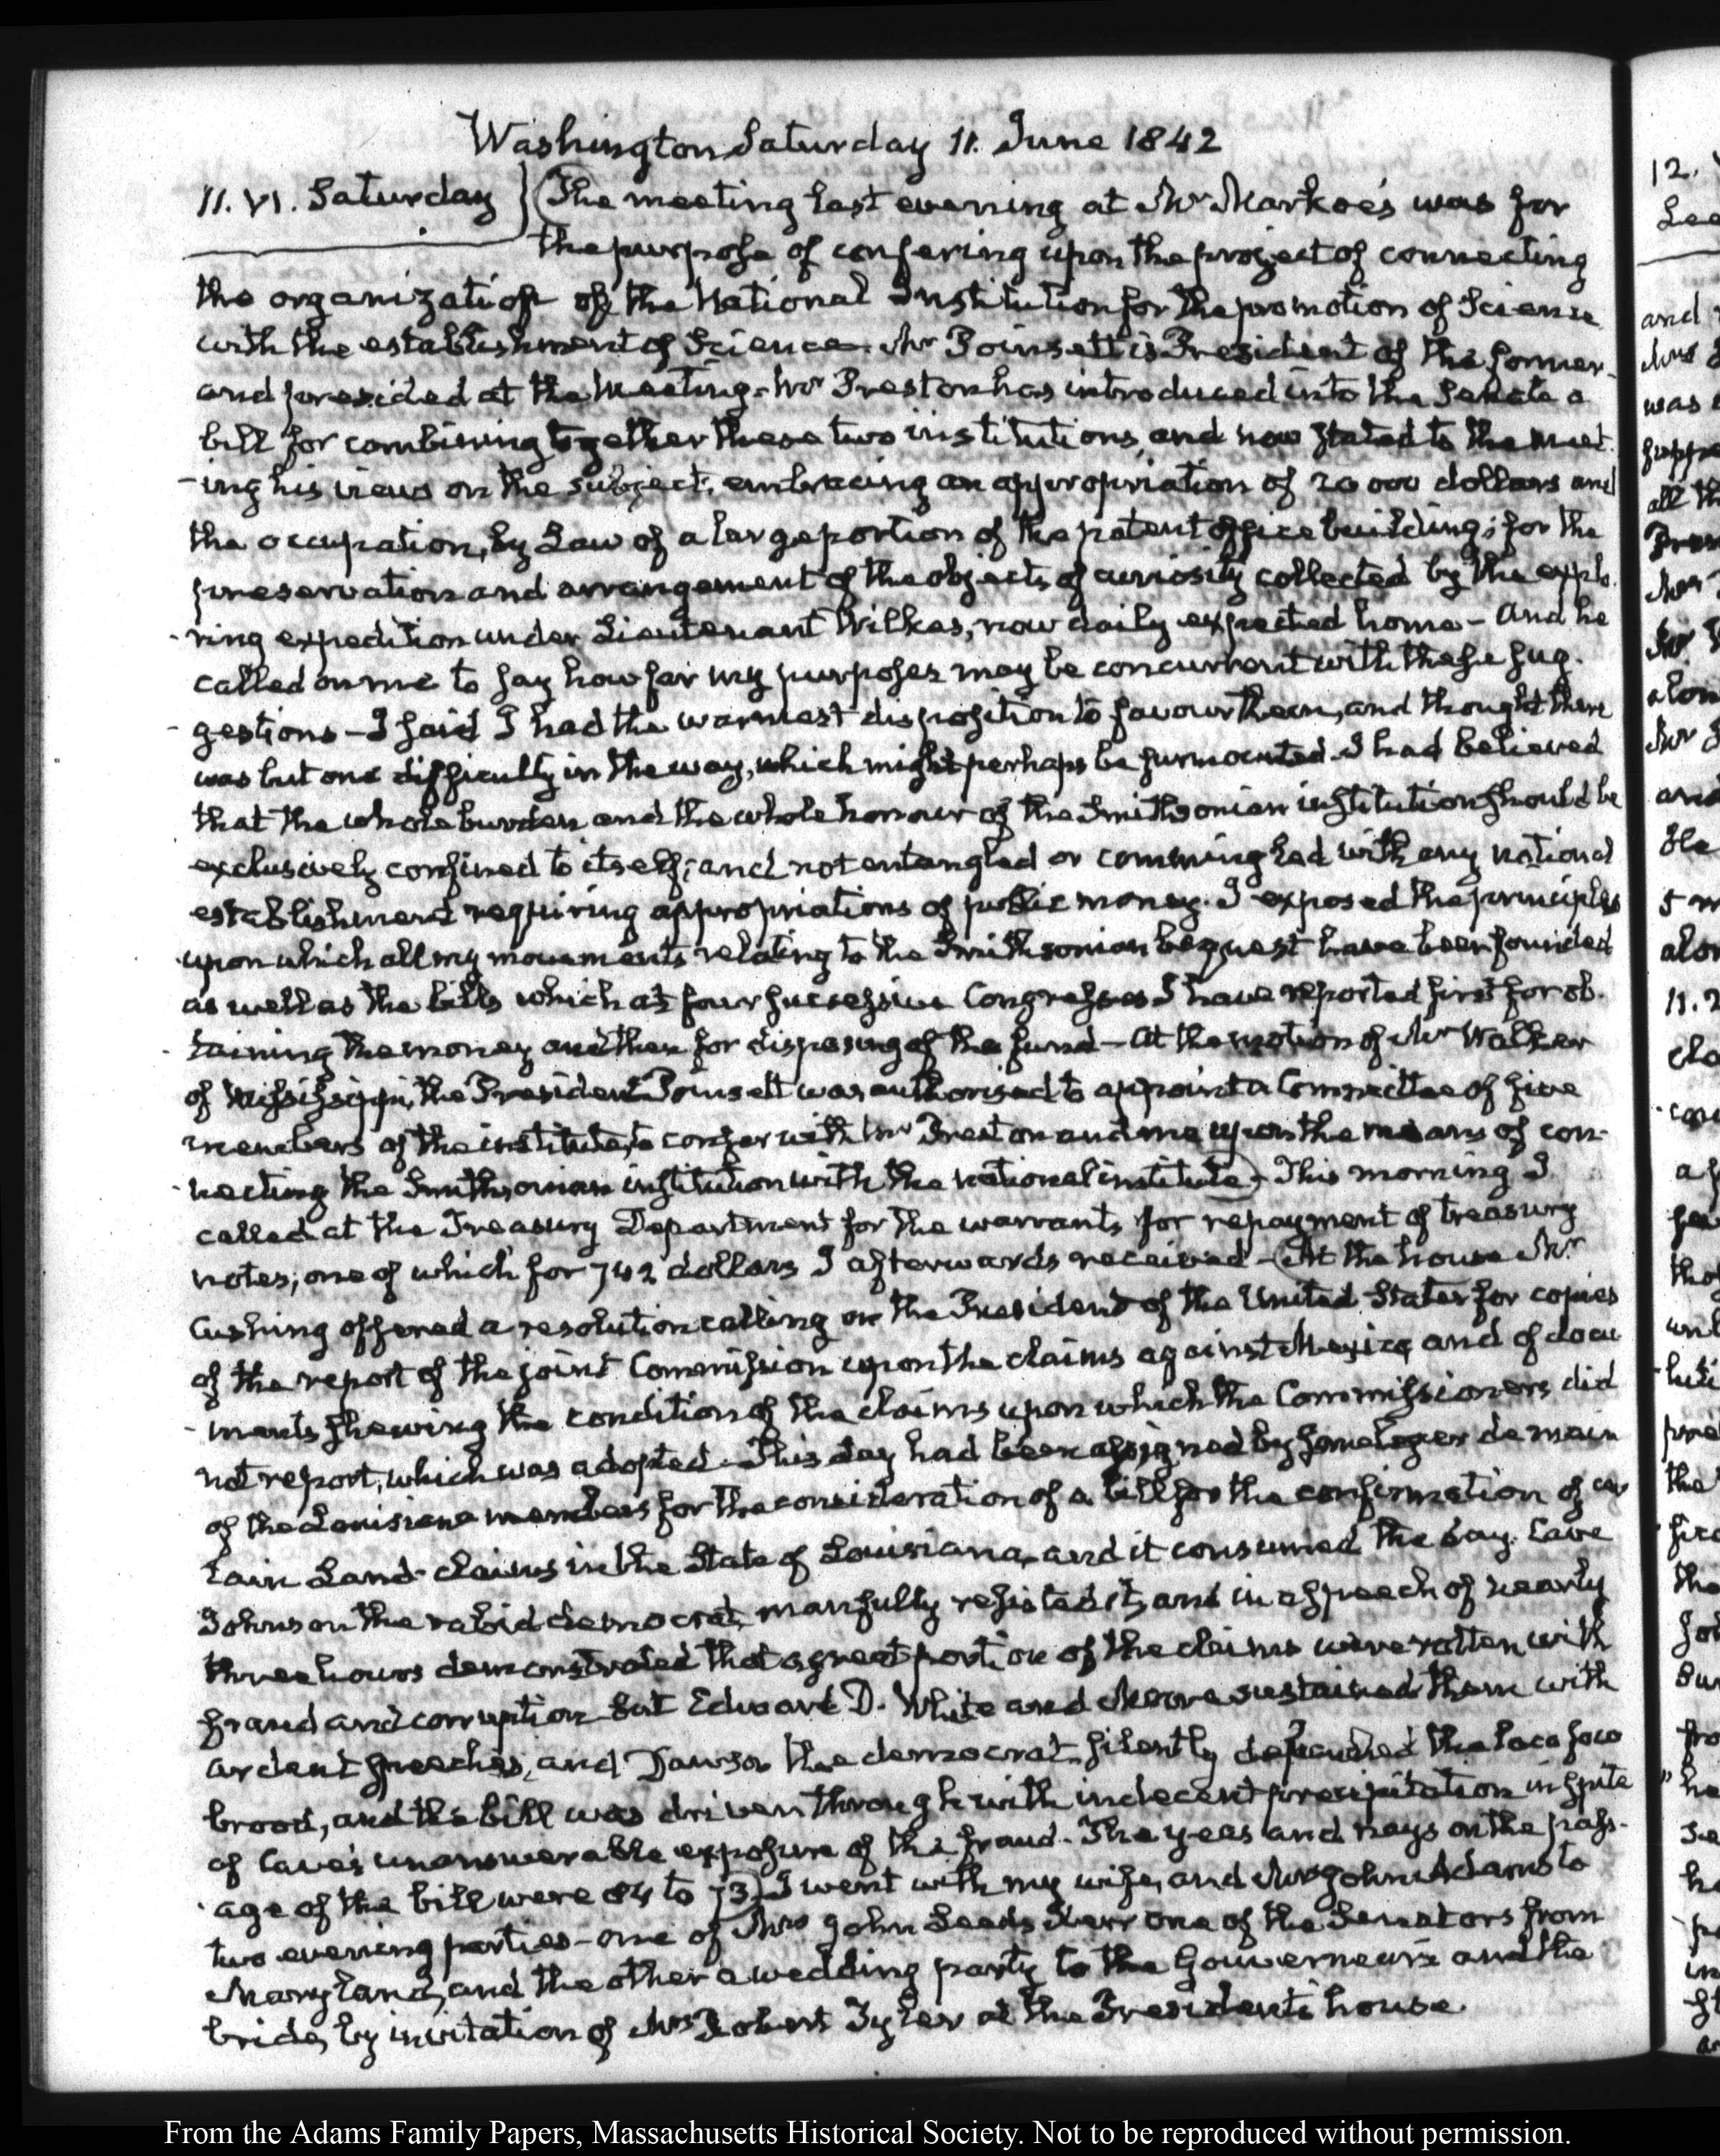 Washington Saturday 11. June 1842
11. VI. Saturday } The meeting last evening at Mr Markoe's was for
the purpose of confering upon the project of connecting
the organization of the National Institution for the promotion of Science
with the establishment of Science. Mr Poinsett is President of the former
and presided at the meeting. Mr Preston has introduced into the Senate a
bill for combining together these two institutions, and now stated to the meet-
-ing his views on the subject, embracing an appropriation of 20 000 dollars and
the occupation, by Law of a large portion of the patent office building; for the
preservation and arrangement of the objects of curiosity collected by the explo-
-ring expedition under Lieutenant Wilkes, now daily expected home - And he
called on me to say how far my purposes may be concurrent with these sug-
-gestions - I said I had the warmest disposition to favour them, and thought there
was but one difficulty in the way, which might perhaps be surmounted. I had believed
that the whole burden and the whole honour of the Smithsonian institution should be
exclusively confined to itself; and not entangled or commingled with any national
establishment requiring appropriations of public money. I exposed the principles
upon which all my movements relating to the Smithsonian bequest have been founded
as well as the bills which at four successive Congresses I have reported first for ob-
-taining the money and then for disposing of the fund - At the motion of Mr Walker
of Mississippi, the President Poinsett was authorised to appoint a Committee of five
members of the institute, to confer with Mr Preston and me upon the means of con-
-necting the Smithsonian institution with the national institute - This morning I
called at the Treasury Department for the warrants for repayment of treasury
notes; one of which for 742 dollars I afterwards received - At the house Mr
Cushing offered a resolution calling on the President of the United States for copies
of the report of the joint Commission upon the claims against Mexico and of docu
-ments shewing the condition of the claims upon which the Commissioners did
not report, which was adopted. This day had been assigned by some legerdemain
of the Louisiana members for the consideration of a bill for the confirmation of cer
tain Land-claims in the State of Louisiana, and it consumed the day. Cave
Johnson the rabid democrat, manfully resisted it, and in a speech of nearly
three hours demonstrated that a great portion of the claims were rotten with
fraud and corruption but Edward D. White and Moore sustained them with
ardent speeches, and Dawson the democrat silently the loco foco
brood, and the bill was driven through with indecent precipitation in spite
of Cave's unanswerable exposure of the fraud. The yeas and nays on the pass-
age of the bill were 84 to 73. I went with my wife, and Mrs John Adams to
two evening parties - one of Mrs John Leeds Kerr one of the Senators from
Maryland, and the other a wedding party to the Gouverneur's and the
bride, by invitation of Mrs Robert Tyler at the President's house.
12.
From the Adams Family Papers, Massachusetts Historical Society. Not to be reproduced without permission.